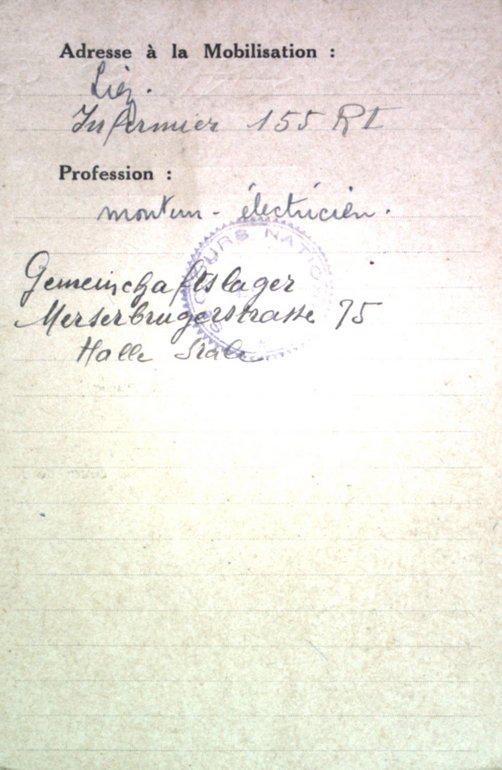 Adresse à la Mobilisation :
Liez.
Infirmier 155 RI
Profession :
monteur - électricien.
SECOURS NATIONAL
Gemeinschaftslager
Merserbrugerstrasse 75
Halle Srale